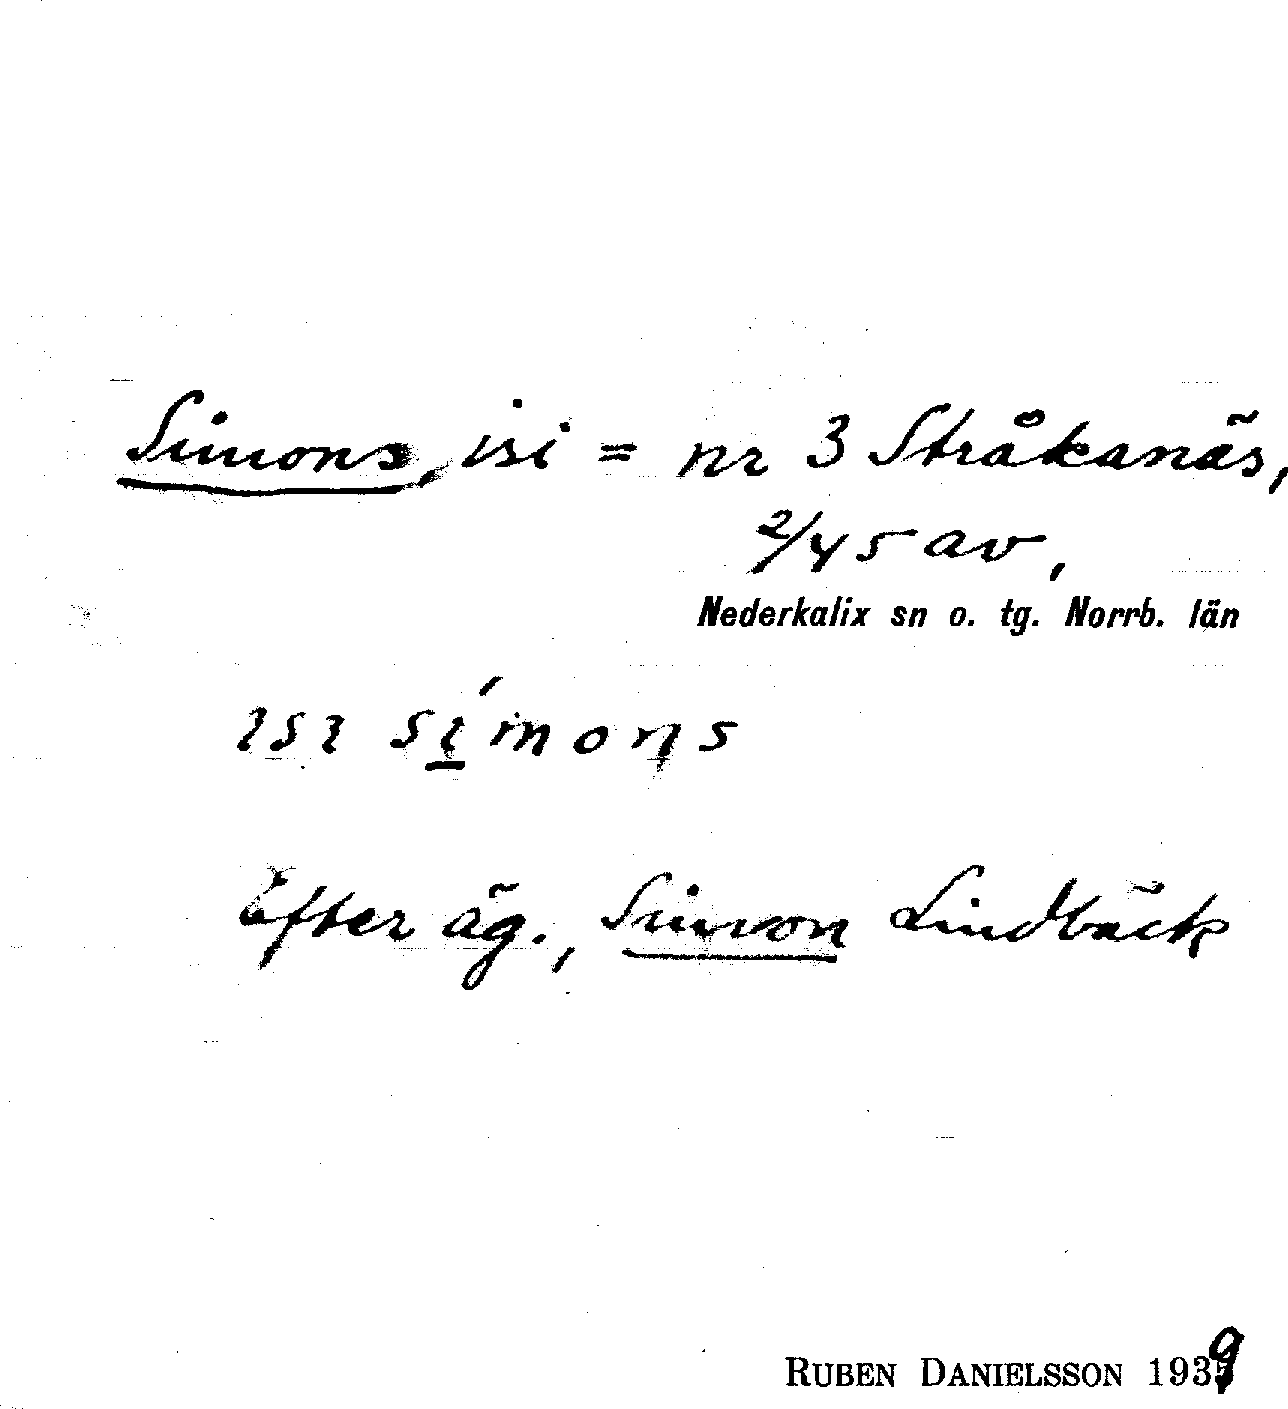 Simons, isi = nr 3 Stråkanäs,
2/45 av,
Nederkalix sn o. tg. Norrb. län
ısı sı́mons
Efter äg., Simon Lindbäck
RUBEN DANIELSSON 1939